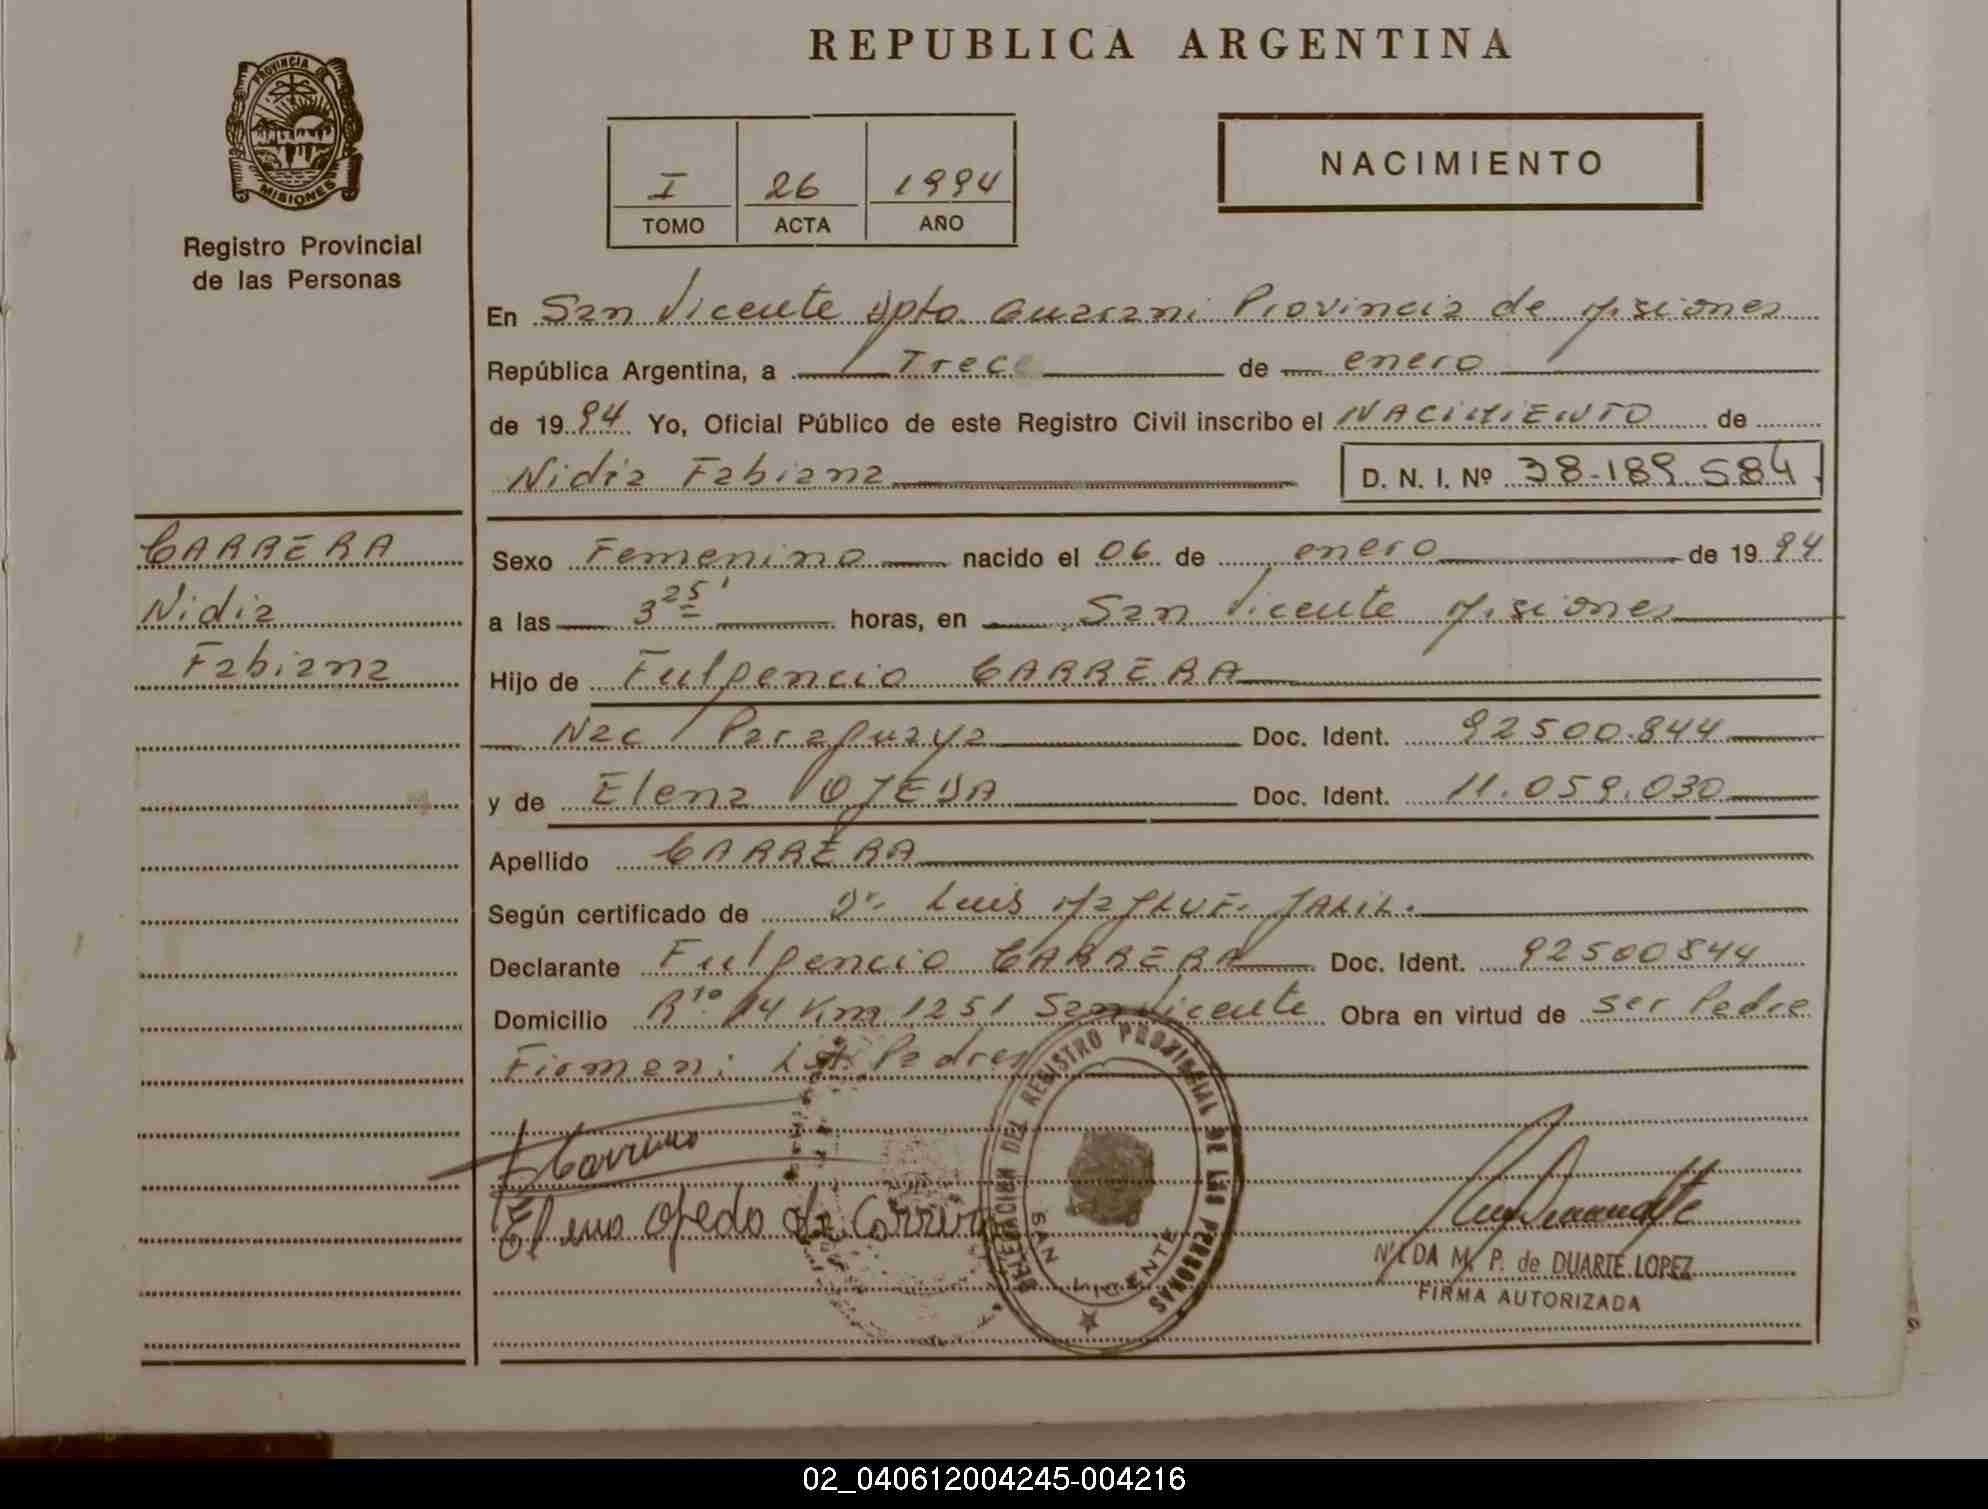 REPUBLICA ARGENTINA
PROVINCIA DE
MISIONES
Registro Provincial
de las Personas
I 26 1994
TOMO ACTA AÑO
NACIMIENTO
En San Vicente Dpto. Guarani Provincia de Misiones
República Argentina, a Trece de enero
de 1994 Yo, Oficial Público de este Registro Civil inscribo el NACIMIENTO de
Nidia Fabiana D. N. I. Nº 38.189.584
CARRERA
Nidia
Fabiana
Sexo Femenino nacido el 06 de enero de 1994
a las 3 25' horas, en San Vicente Misiones
Hijo de Fulgencio CARRERA
Nac. Paraguaya Doc. Ident. 92500.844
y de Elena OJEDA Doc. Ident. 11.059.030
Apellido CARRERA
Según certificado de Dr. Luis JALIL.
Declarante Fulgencio CARRERA Doc. Ident. 92500844
Domicilio Rta. 14 Km 1251 San Vicente Obra en virtud de ser Padre
Firman: Los Padres
Elena Ojeda de Carrera
DELEGACION DEL REGISTRO PROVINCIAL DE LAS PERSONAS
SAN VICENTE
NILDA M. P. de DUARTE LOPEZ
FIRMA AUTORIZADA
02_040612004245-004216